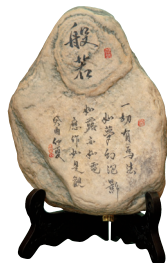 般若
一切有為法
如夢幻泡影
如露亦如電
應作如是觀